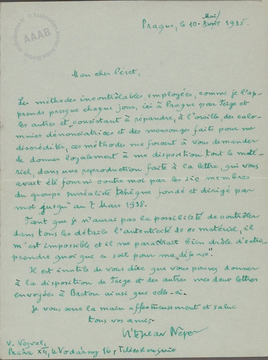 AAAB
Prague, le 10 Mai 1938.
Mon cher Péret,
Les méthodes incontrôlables employées, comme je l'ap-
prends presque chaque jour, ici à Prague par Teige et
les autres et consistant à répandre, à l'oreille des calom-
nies dénonciatrices et des mensonges faits pour me
désorienter, ces méthodes me forcent à vous demander
de donner loyalement à ma disposition tout le maté-
riel, dans une reproduction faite à la lettre, qui vous
avait été fourni contre moi par les six membres
du groupe surréaliste tchèque fondé et dirigé par
moi jusqu'au 7 Mars 1938.
Tant que je n'aurai pas la possibilité de contrôler
dans tous les détails l'authenticité de ce matériel, il
m'est impossible et il me paraîtrait bien drôle d'entre-
prendre quoi que ce soit pour ma
Il est inutile de vous dire que vous pouvez donner
à la disposition de Teige et des autres mes deux lettres
envoyées à Breton ainsi que celle-ci.
Je vous serre la main affectueusement et salue
tous vos amis.
Vítězslav Nezval
V. Nezval,
Praha XII,